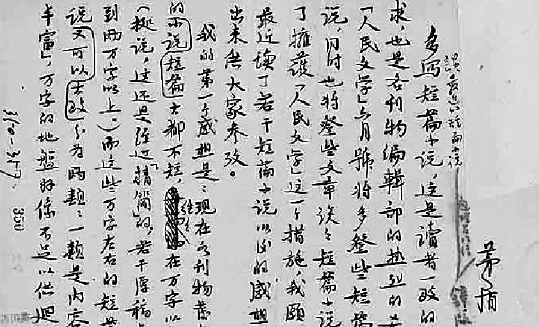 茅盾
谈最近的短篇小说
多写短篇小说,这是读者一致的
求,也是各刊物编辑部的热烈的
「人民文学」六月號将多登些短篇
说,同时也将登些文章谈谈短篇小说
了擁護「人民文学」这一个措施,我願
最近读了若干短篇小说以后的感想
出来供大家参考。
我的第一个感想是:现在各刊物登
的小说短篇大都不短,往往在万字以
(据说,这还是经过「精简」的,若干原稿
到两万字以上。)而这些万字左右的短篇
说又可以大致分为两類:一類是内容
丰富,万字的地盤好像不足以供迴